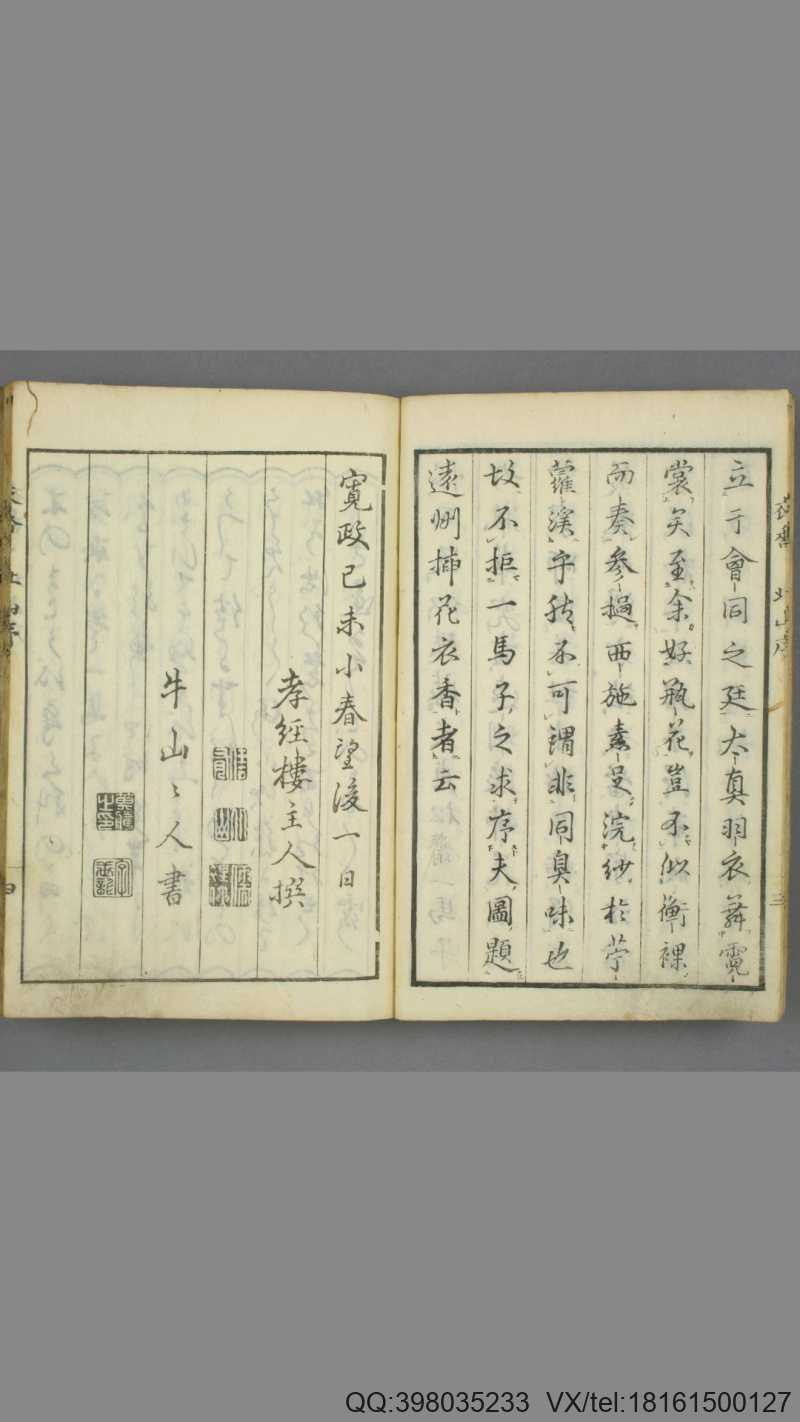 立于會同之廷太真羽衣舞霓
裳矣至余好瓶花豈不似衡裸
而奏參撾西施素足浣紗於苧
蘿溪乎然不可謂非同臭味也
故不拒一馬子之求序夫圖題
遠州插花衣香者云
寬政己未小春望後一日
孝經樓主人撰
牛山々人書
QQ:398035233 VX/tel:18161500127